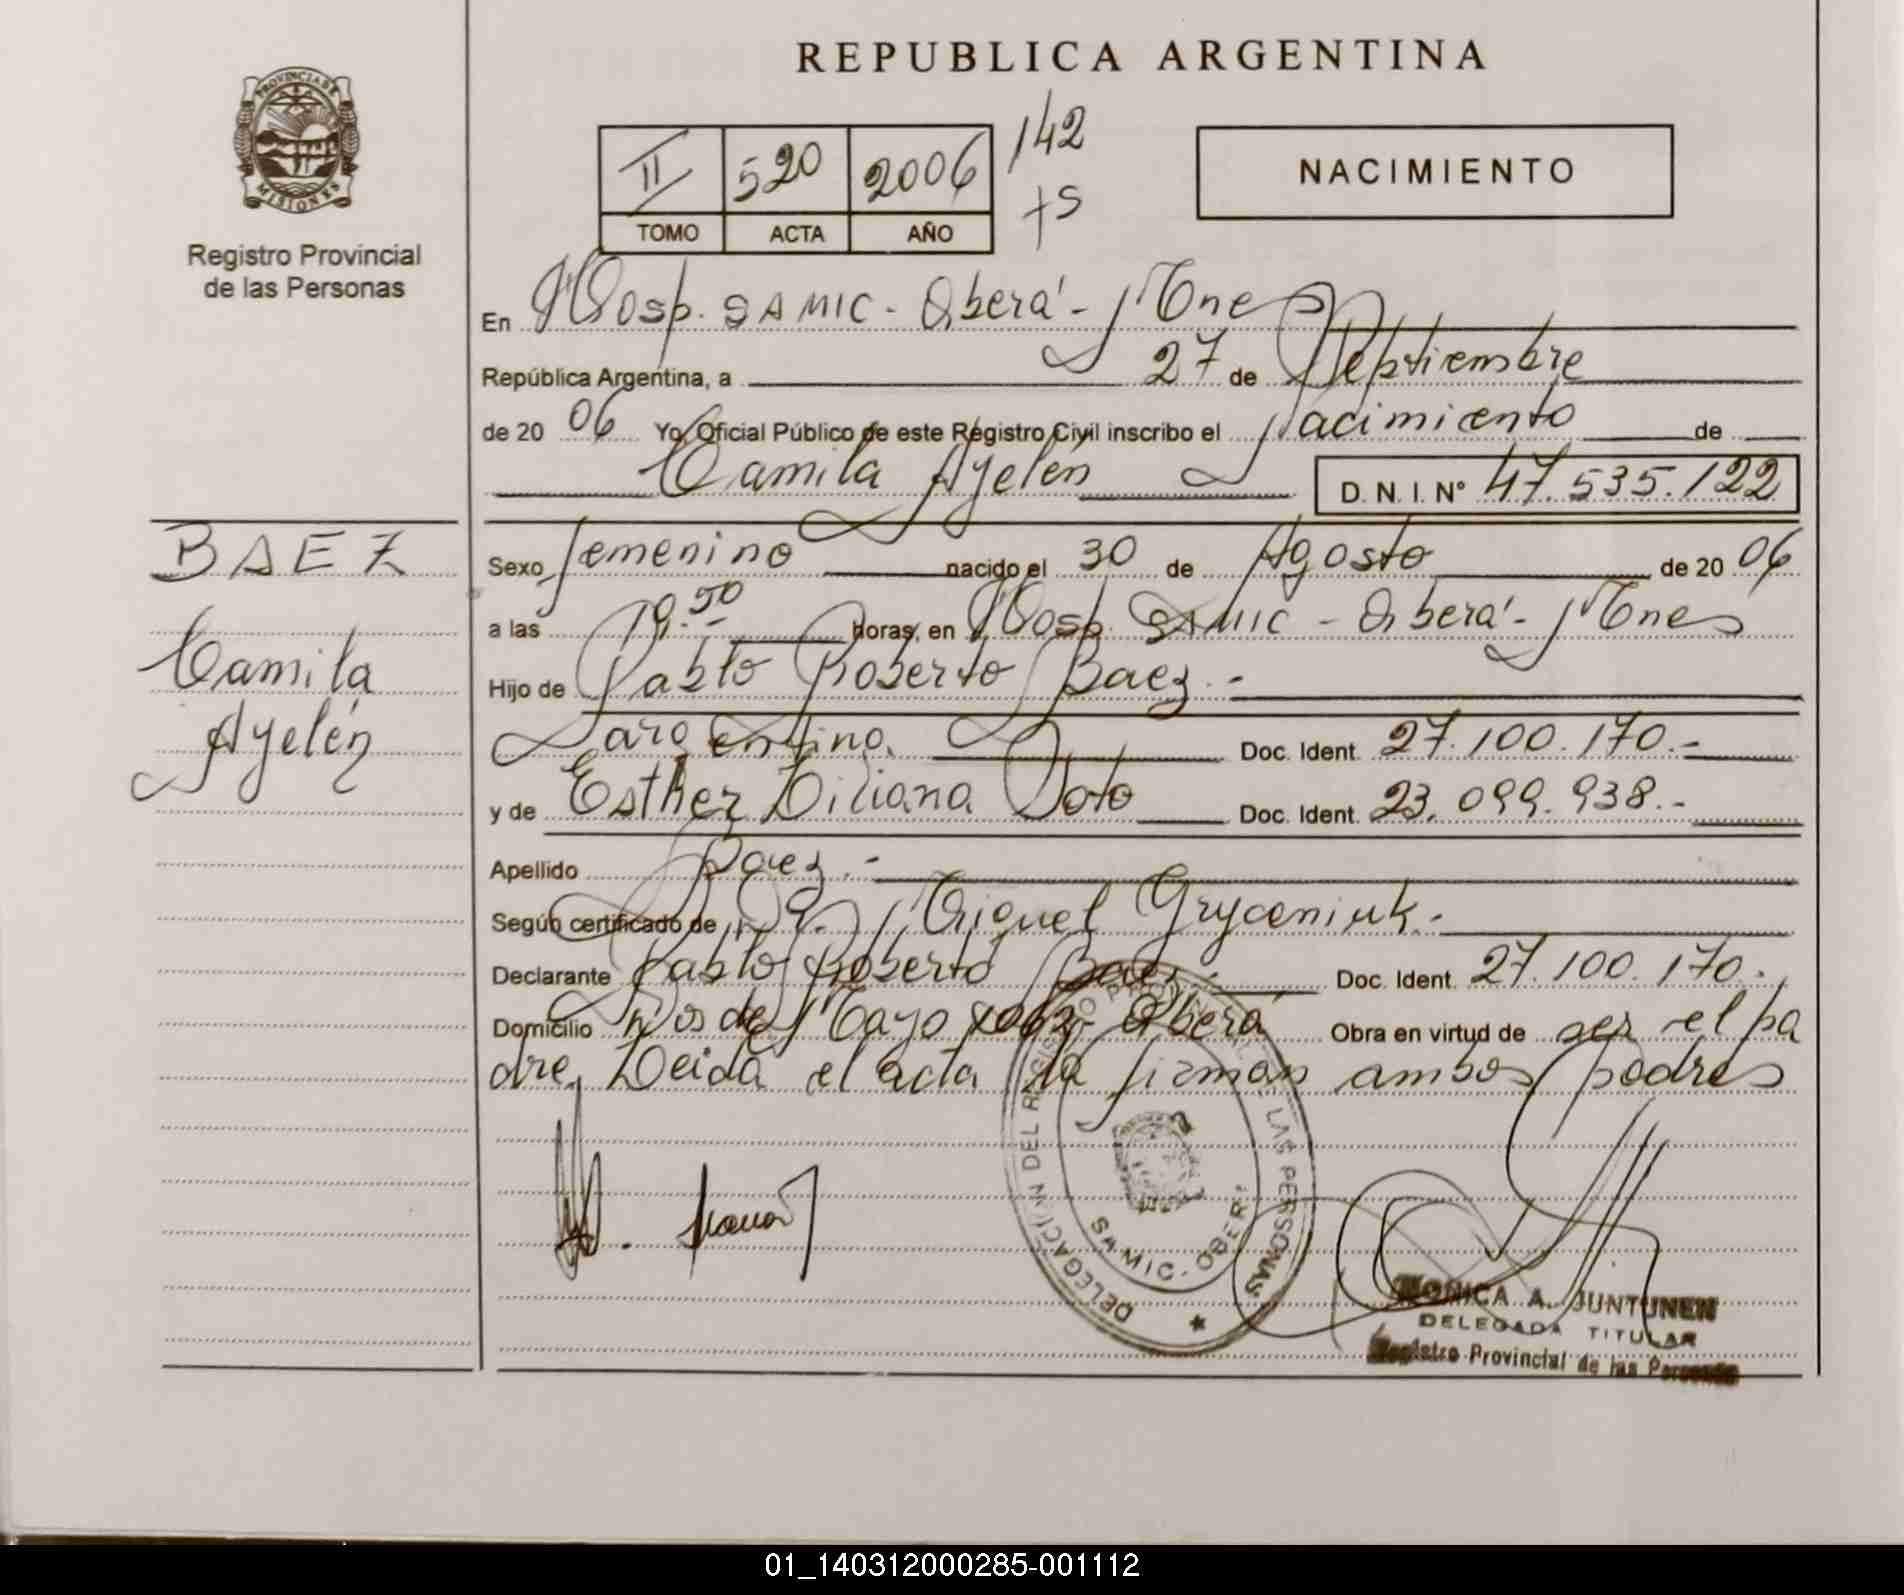 REPUBLICA ARGENTINA
PROVINCIA DE
MISIONES
Registro Provincial
de las Personas
II 520 2006 142
TOMO ACTA AÑO
NACIMIENTO
En Hosp. SAMIC - Oberá - Mnes
República Argentina, a 27 de Septiembre
de 20 06 Yo, Oficial Público de este Registro Civil inscribo el Nacimiento de
Camila Ayelén D. N. I. Nº 47.535.122
BAEZ
Camila
Ayelén
Sexo femenino nacido el 30 de Agosto de 20 06
a las 19.50 horas, en Hosp. SAMIC - Oberá - Mnes
Hijo de Pablo Roberto Baez.-
argentino. Doc. Ident. 27.100.170.-
y de Esther Liliana Soto Doc. Ident. 23.099.938.-
Apellido Baez.-
Según certificado de Dr. Miguel Gryceniuk.
Declarante Pablo Roberto Baez.- Doc. Ident. 27.100.170.
Domicilio de Mayo Oberá Obra en virtud de ser el pa
dre. Leida el acta la firman ambos padres
DELEGACION DEL REGISTRO PROVINCIAL DE LAS PERSONAS
SAMIC. OBERA
MONICA A. JUNTUNEN
DELEGADA TITULAR
Registro Provincial de las Personas
01_140312000285-001112